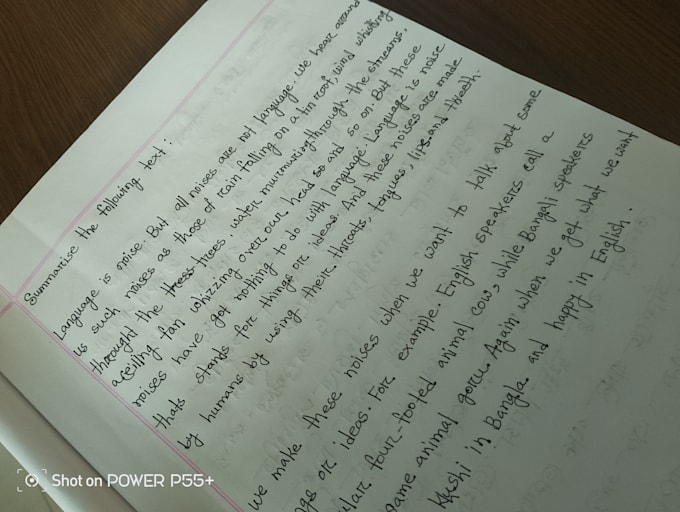 Summarise the following text:
Language is noise. But all noises are not language. We hear around
us such noises as those of rain falling on a tin roof, wind whistling
throught the tress trees. water murmuring through the streams,
aceiling fan whizzing over our head so and so on. But these
noises have got nothing to do with language. Language is noise
thats stands for things or ideas. And these noises are made
by humans by using their throats, tongues, lips and theeth.
we make these noises when we want to talk about some
gs or ideas. For example. English speakers call a
ular four-footed animal cow, while Bangali speakers
same animal goru. Again when we get what we want
Khushi in Bangla and happy in English.
Shot on POWER P55+